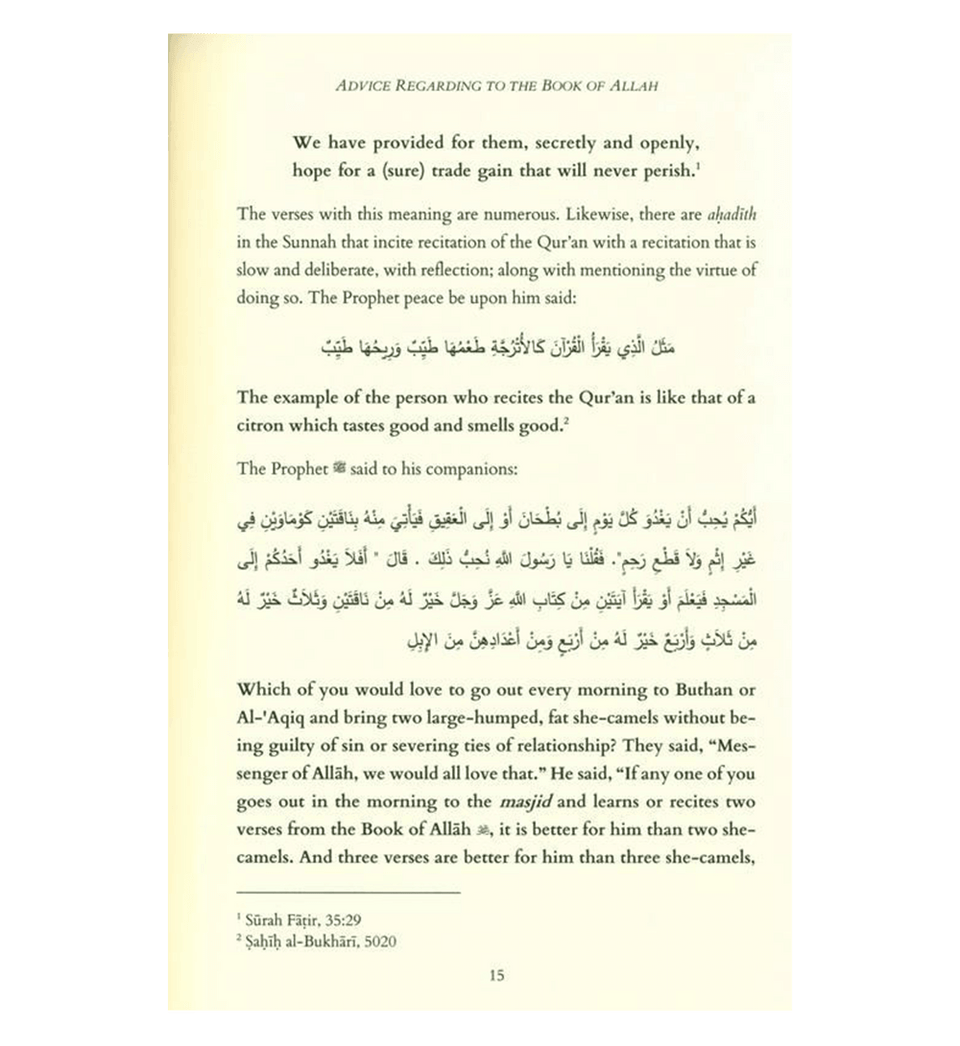 ADVICE REGARDING TO THE BOOK OF ALLAH
We have provided for them, secretly and openly,
hope for a (sure) trade gain that will never perish.¹
The verses with this meaning are numerous. Likewise, there are aḥadīth
in the Sunnah that incite recitation of the Qur'an with a recitation that is
slow and deliberate, with reflection; along with mentioning the virtue of
doing so. The Prophet peace be upon him said:
مَثَلُ الَّذِي يَقْرَأُ الْقُرْآنَ كَالأُتْرُجَّةِ طَعْمُهَا طَيِّبٌ وَرِيحُهَا طَيِّبٌ
The example of the person who recites the Qur'an is like that of a
citron which tastes good and smells good.²
The Prophet ﷺ said to his companions:
أَيُّكُمْ يُحِبُّ أَنْ يَغْدُوَ كُلَّ يَوْمٍ إِلَى بُطْحَانَ أَوْ إِلَى الْعَقِيقِ فَيَأْتِيَ مِنْهُ بِنَاقَتَيْنِ كَوْمَاوَيْنِ فِي
غَيْرِ إِثْمٍ وَلاَ قَطْعِ رَحِمٍ". فَقُلْنَا يَا رَسُولَ اللهِ نُحِبُّ ذَلِكَ . قَالَ " أَفَلاَ يَغْدُو أَحَدُكُمْ إِلَى
الْمَسْجِدِ فَيَعْلَمَ أَوْ يَقْرَأَ آيَتَيْنِ مِنْ كِتَابِ اللهِ عَزَّ وَجَلَّ خَيْرٌ لَهُ مِنْ نَاقَتَيْنِ وَثَلاَثٌ خَيْرٌ لَهُ
مِنْ ثَلاَثٍ وَأَرْبَعٌ خَيْرٌ لَهُ مِنْ أَرْبَعٍ وَمِنْ أَعْدَادِهِنَّ مِنَ الإِبِلِ
Which of you would love to go out every morning to Buthan or
Al-'Aqiq and bring two large-humped, fat she-camels without be-
ing guilty of sin or severing ties of relationship? They said, “Mes-
senger of Allāh, we would all love that.” He said, “If any one of you
goes out in the morning to the masjid and learns or recites two
verses from the Book of Allāh , it is better for him than two she-
camels. And three verses are better for him than three she-camels,
¹ Sūrah Fāṭir, 35:29
² Ṣaḥīḥ al-Bukhārī, 5020
15